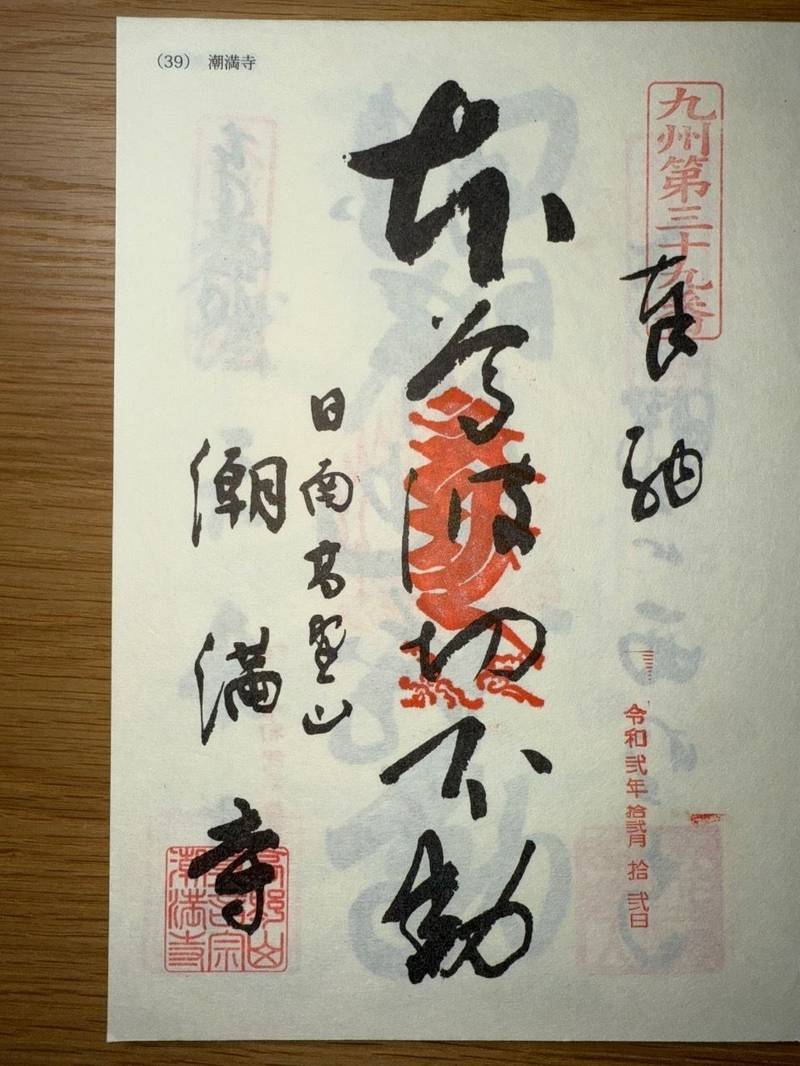 (39) 潮満寺
九州第三十九番
奉納
令和弐年拾弐月拾弐日
本尊波切不動
日南高野山
潮満寺
高野山
真言宗
潮満寺